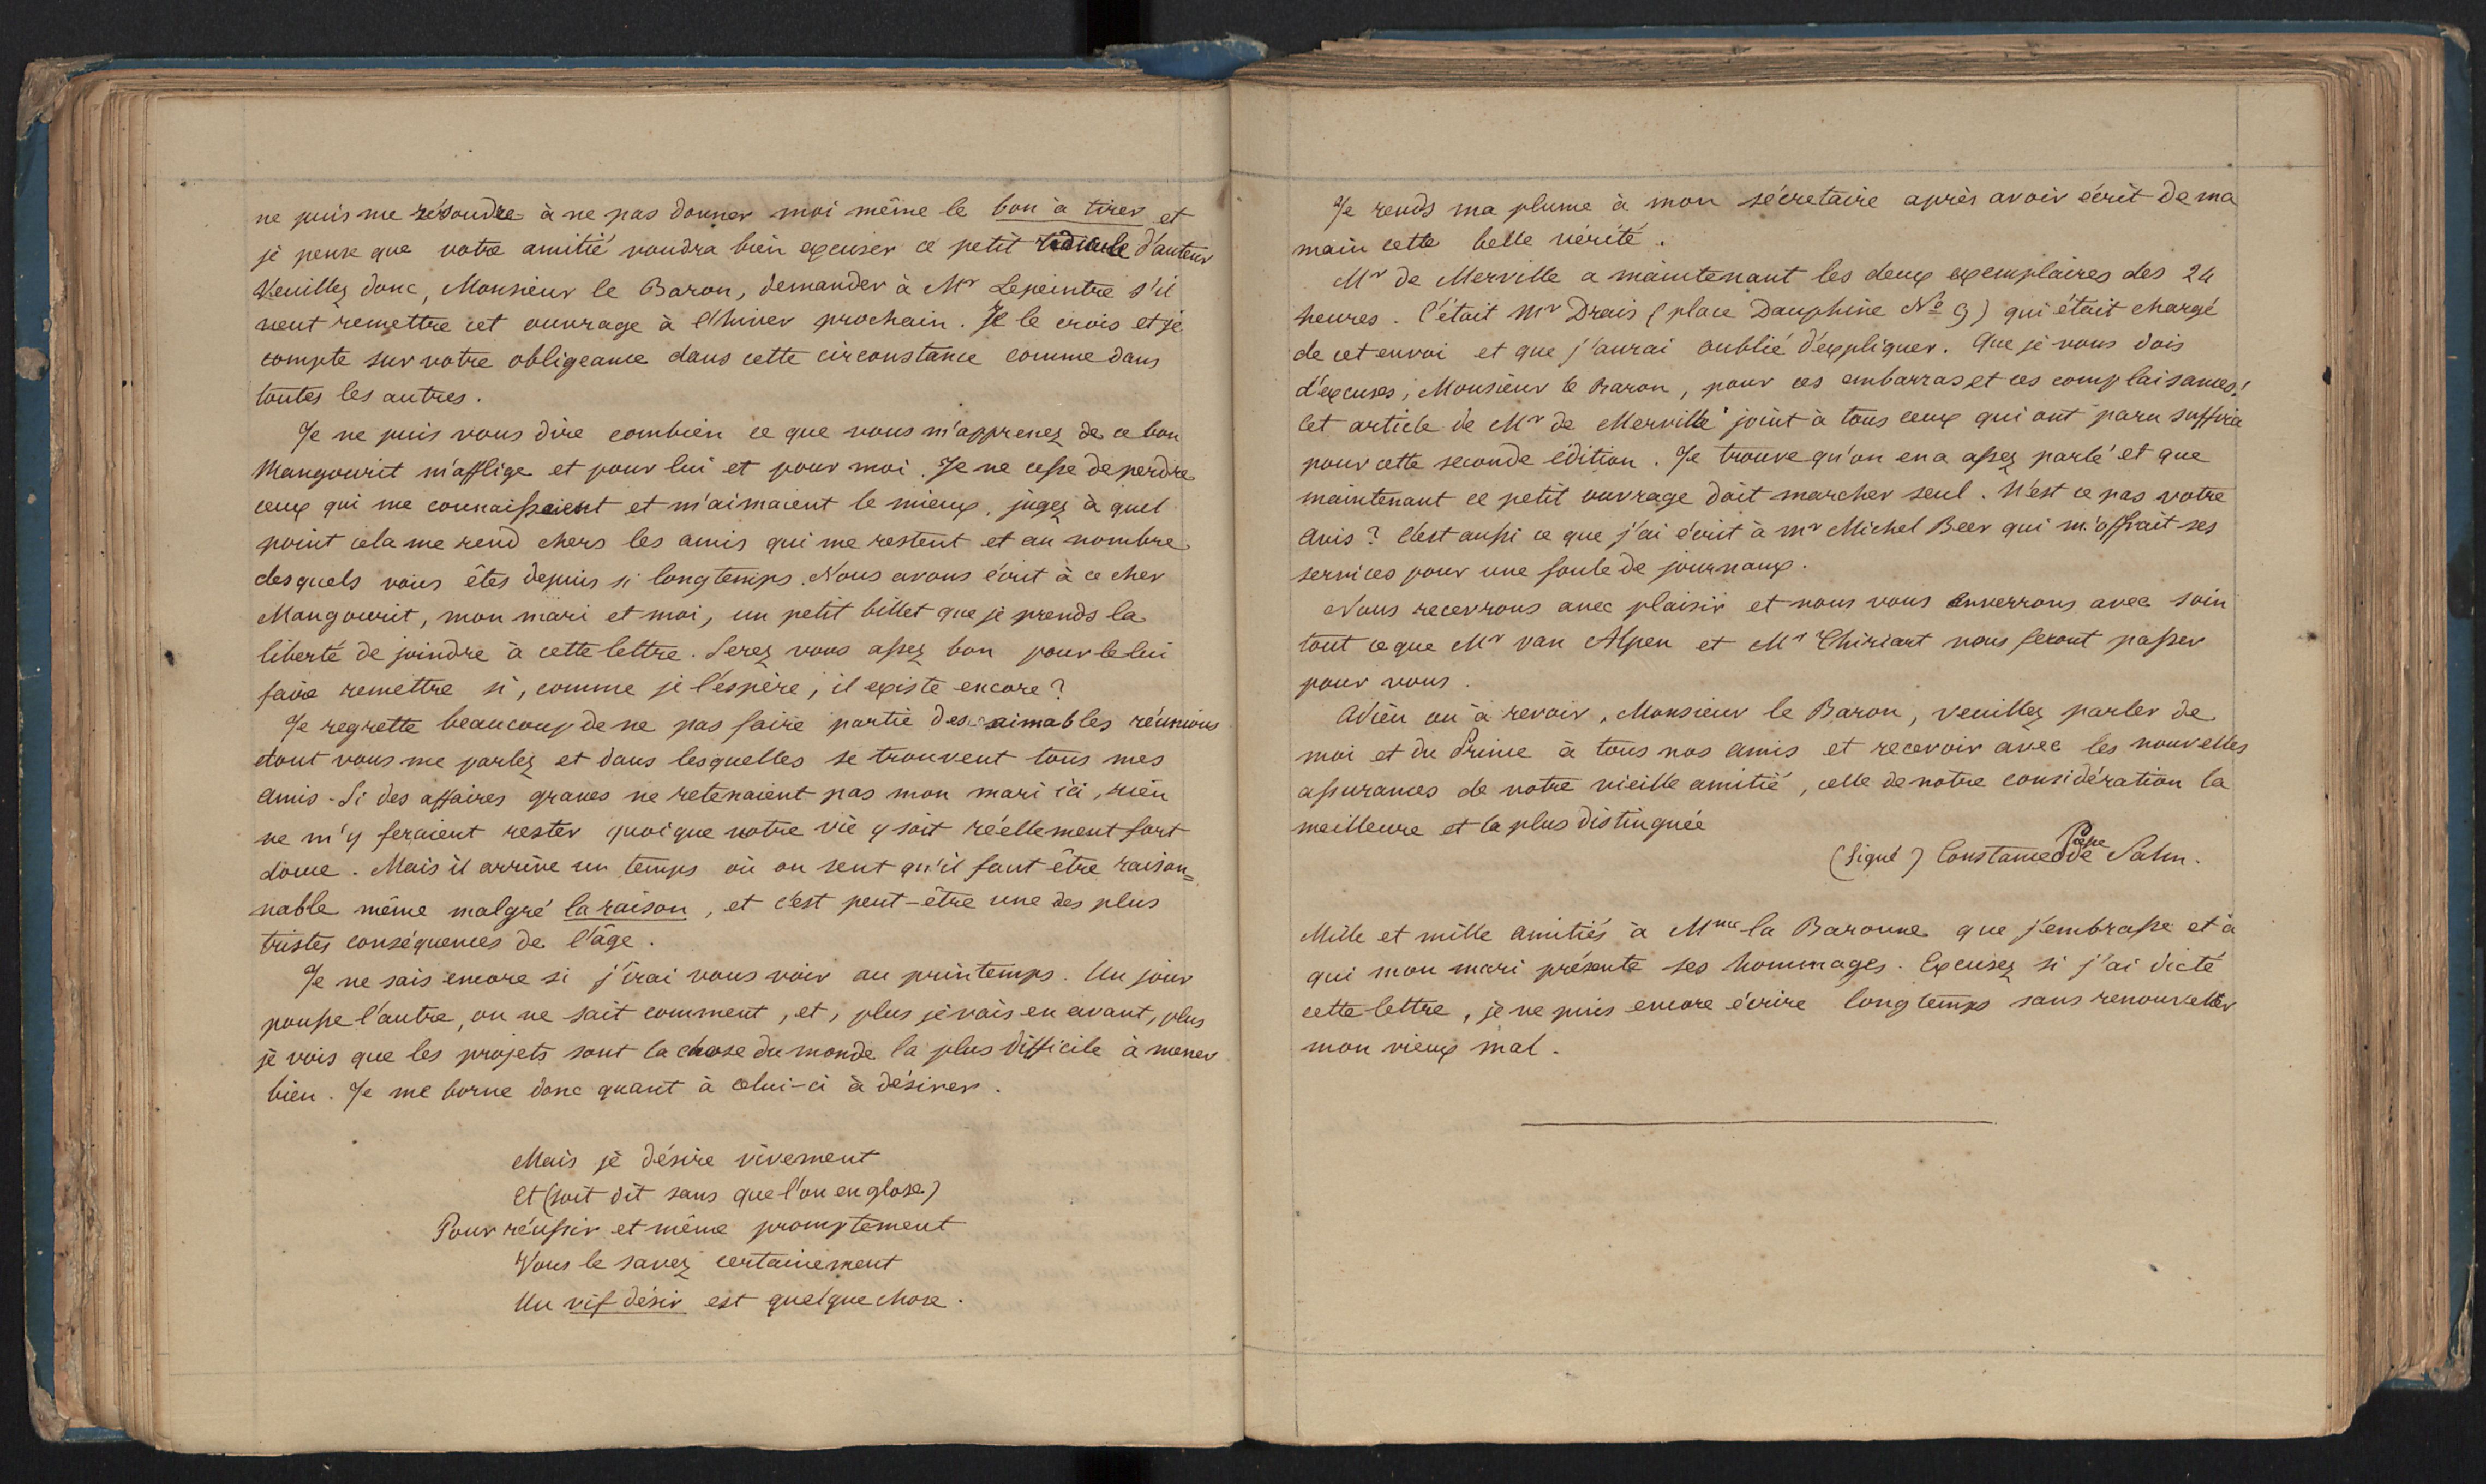 ne puis me résoudre à ne pas donner moi même le bon à tirer et
je pense que votre amitié voudra bien excuser ce petit ridicule d'auteur
Veuillez donc, Monsieur le Baron, demander à Mr Lepeintre s'il
veut remettre cet ouvrage à l'hiver prochain. Je le crois et je
compte sur votre obligeance dans cette circonstance comme dans
toutes les autres.
Je ne puis vous dire combien ce que vous m'apprenez de ce bon
Mangourit m'afflige et pour lui et pour moi. Je ne cesse de perdre
ceux qui me connaissaient et m'aimaient le mieux, jugez à quel
point cela me rend chers les amis qui me restent et au nombre
desquels vous êtes depuis si longtemps. Nous avons écrit à ce cher
Mangourit, mon mari et moi, un petit billet que je prends la
liberté de joindre à cette lettre. Serez vous assez bon pour le lui
faire remettre si, comme je l'espère, il existe encore?
Je regrette beaucoup de ne pas faire partie des aimables réunions
dont vous me parlez et dans lesquelles se trouvent tous mes
amis. Si des affaires graves ne retenaient pas mon mari ici, rien
ne m'y feraient rester quoique notre vie y soit réellement fort
douce. Mais il arrive un temps où on sent qu'il faut être raison=
nable même malgré la raison, et c'est peut-être une des plus
tristes conséquences de l'âge.
Je ne sais encore si j'irai vous voir au printemps. Un jour
pousse l'autre, on ne sait comment, et, plus je vais en avant, plus
je vois que les projets sont la chose du monde la plus difficile à mener
bien. Je me borne donc quant à celui-ci à désirer.
Mais je désire vivement
Et (soit dit sans que l'on en glose)
Pour réussir et même promptement
Vous le savez certainement
Un vif désir est quelque chose.
Je rends ma plume à mon sécretaire après avoir écrit de ma
main cette belle vérité.
Mr de Merville a maintenant les deux exemplaires des 24
heures. C'était Mr Drais (place Dauphine No 9) qui était chargé
de cet envoi et que j'aurai oublié d'expliquer. Que je vous dois
d'excuses, Monsieur le Baron, pour ces embarras et ces complaisances!
Cet article de Mr de Merville joint à tous ceux qui ont paru suffira
pour cette seconde édition. Je trouve qu'on en a assez parlé et que
maintenant ce petit ouvrage doit marcher seul. N'est ce pas votre
avis? C'est aussi ce que j'ai écrit à Mr Michel Beer qui m'offrait ses
services pour une foule de journaux.
Nous recevrons avec plaisir et nous vous enverrons avec soin
tout ce que Mr van Alpen et Mr Thiriart nous feront passer
pour vous.
Adieu ou à revoir, Monsieur le Baron, veuillez parler de
moi et du Prince à tous nos amis et recevoir avec les nouvelles
assurances de notre vieille amitié, celle de notre considération la
meilleure et la plus distinguée
(Signé) Constance Psse de Salm.
Mille et mille amitiés à Mme la Baronne que j'embrasse et à
qui mon mari présente ses hommages. Excusez si j'ai dicté
cette lettre, je ne puis encore écrire longtemps sans renouveller
mon vieux mal.